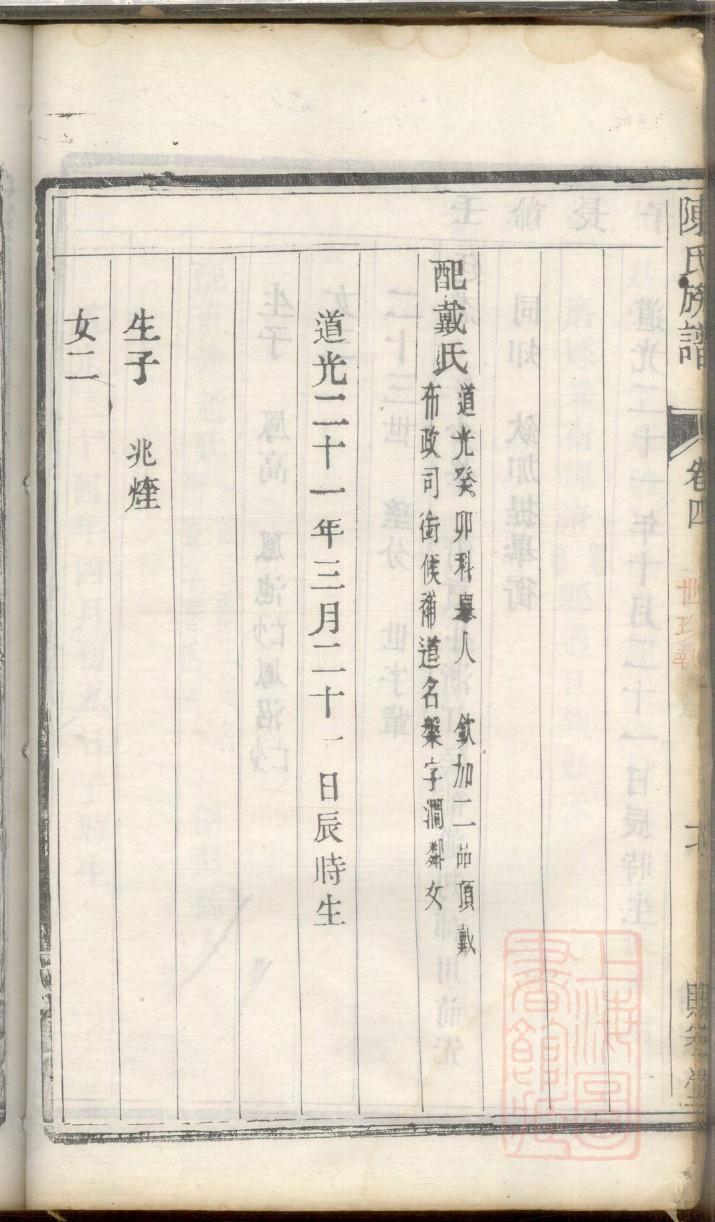 陳氏族譜
卷四
配戴氏
道光癸卯科舉人　欽加二品頂戴
布政司銜候補道名槃字澗鄰女
道光二十一年三月二十一日辰時生
生子　兆煃
女二
上海圖書館藏